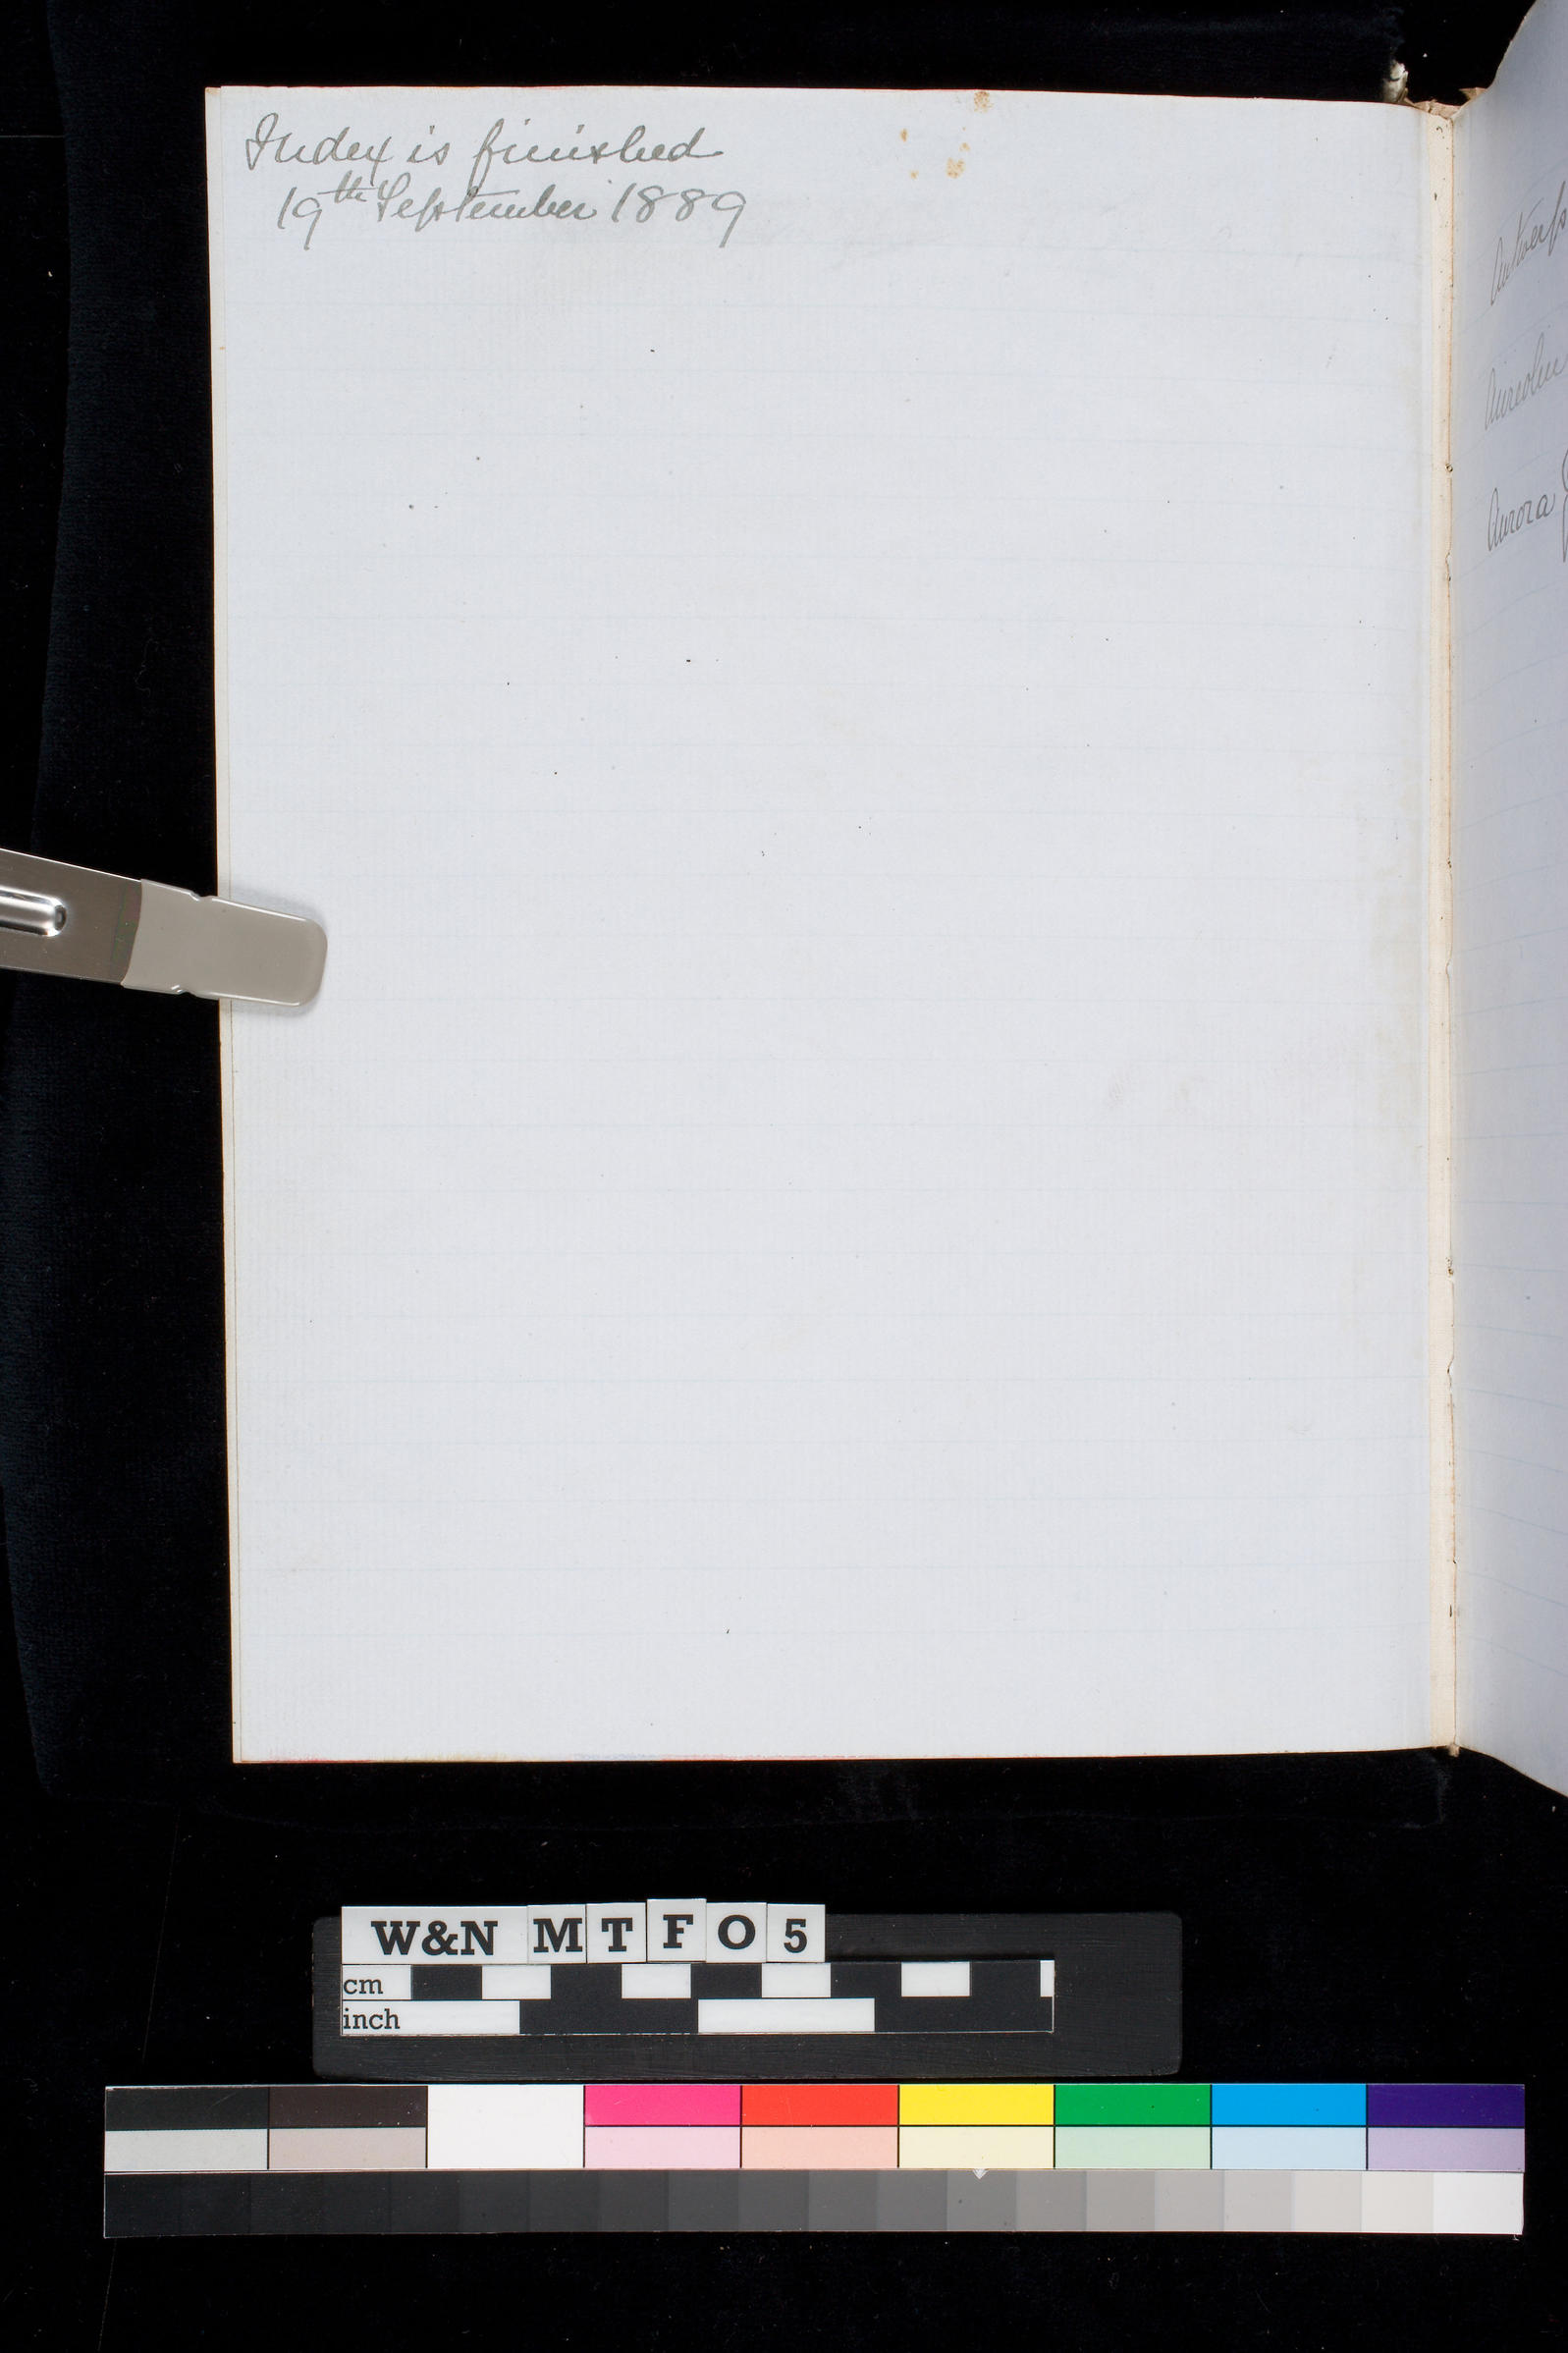 Index is finished
19th September 1889
Antwerp
Aureolin
Aurora
W&N MTFO5
cm
inch